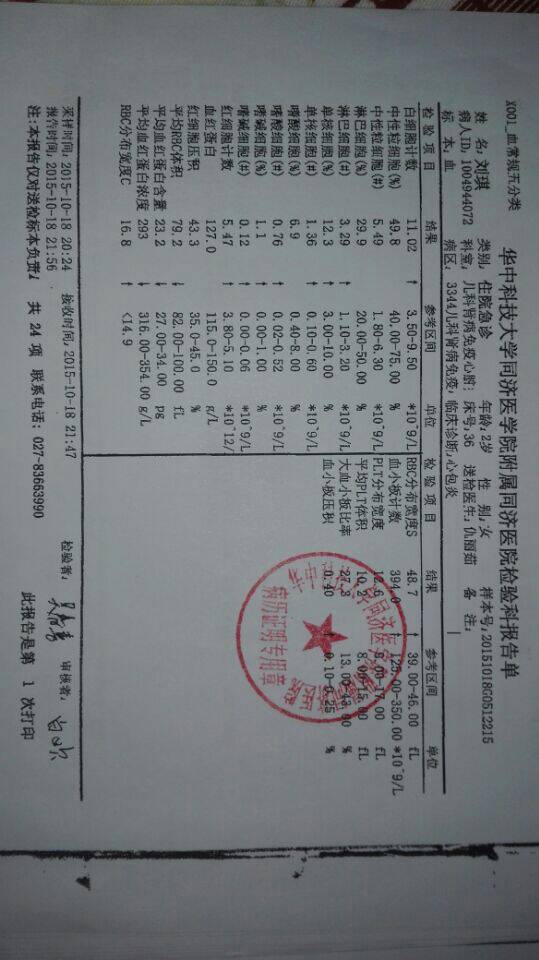 X001_血常规五分类
华中科技大学同济医学院附属同济医院检验科报告单
姓 名:刘琪 类别:住院急诊 年龄:2岁 性 别:女 样本号:20151018G0512215
病人ID:1004944072 科室:儿科肾病免疫心脏 床号:36 送检医生:仇丽茹 备 注:
标 本:血 病区:3344儿科肾病免疫 临床诊断:心包炎
检 验 项 目 结果 参考区间 单位 检 验 项 目 结果 参考区间 单位
白细胞计数 11.02 ↑ 3.50-9.50 *10^9/L RBC分布宽度S 48.7 ↑ 39.00-46.00 fL
中性粒细胞(%) 49.8 40.00-75.00 % 血小板计数 394.0 ↑ 125.00-350.00 *10^9/L
中性粒细胞(#) 5.49 1.80-6.30 *10^9/L PLT分布宽度 12.6 9.00-17.00 fL
淋巴细胞(%) 29.9 20.00-50.00 % 平均PLT体积 10.2 fL
淋巴细胞(#) 3.29 ↑ 1.10-3.20 *10^9/L 大血小板比率 27.3 13.00-43.00 %
单核细胞(%) 12.3 ↑ 3.00-10.00 % 血小板压积 0.40 ↑ 0.10-0.25 %
单核细胞(#) 1.36 ↑ 0.10-0.60 *10^9/L
嗜酸细胞(%) 6.9 0.40-8.00 %
嗜酸细胞(#) 0.76 ↑ 0.02-0.52 *10^9/L
嗜碱细胞(%) 1.1 ↑ 0.00-1.00 %
嗜碱细胞(#) 0.12 ↑ 0.00-0.06 *10^9/L
红细胞计数 5.47 ↑ 3.80-5.10 *10^12/
血红蛋白 127.0 115.0-150.0 g/L
红细胞压积 43.3 35.0-45.0 %
平均RBC体积 79.2 ↓ 82.00-100.00 fL
平均血红蛋白含量 23.2 ↓ 27.00-34.00 pg
平均血红蛋白浓度 293 ↓ 316.00-354.00 g/L
RBC分布宽度C 16.8 ↑ <14.9
采样时间:2015-10-18 20:24 接收时间:2015-10-18 21:47 检验者: 审核者:
报告时间:2015-10-18 21:56
注:本报告仅对送检标本负责! 共 24 项 联系电话:027-83663990 此报告是第 1 次打印
病历证明专用章